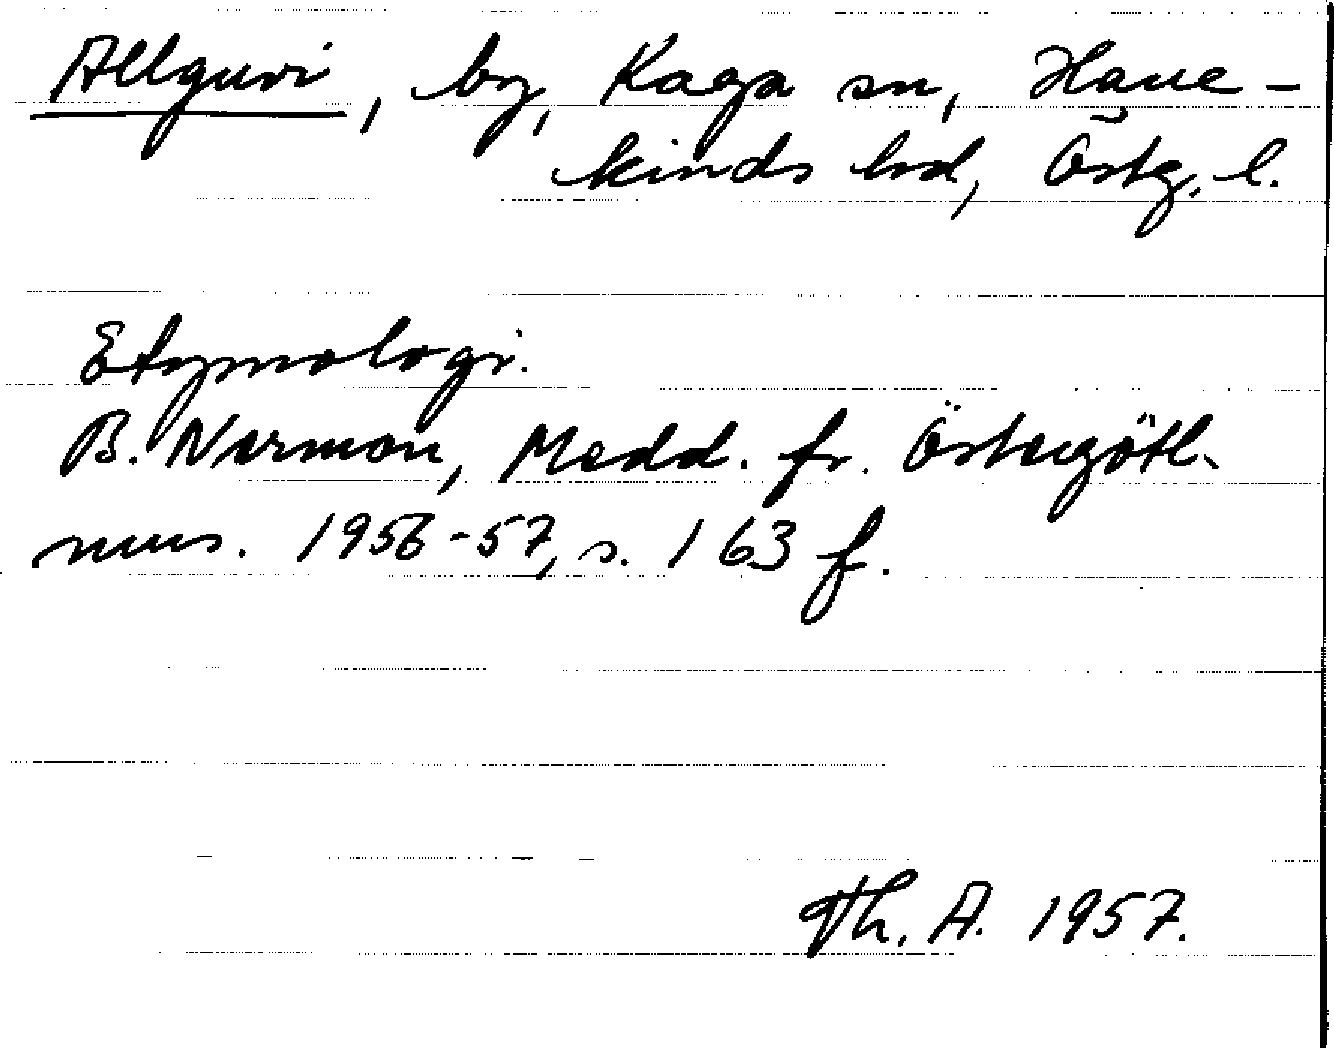 Allguvi, by, Kaga sn, Hane-
kinds hd, Östg. l.
Etymologi.
B. Nerman, Medd. fr. Östergötl.
mus. 1956-57, s. 163 f.
Th. A. 1957.